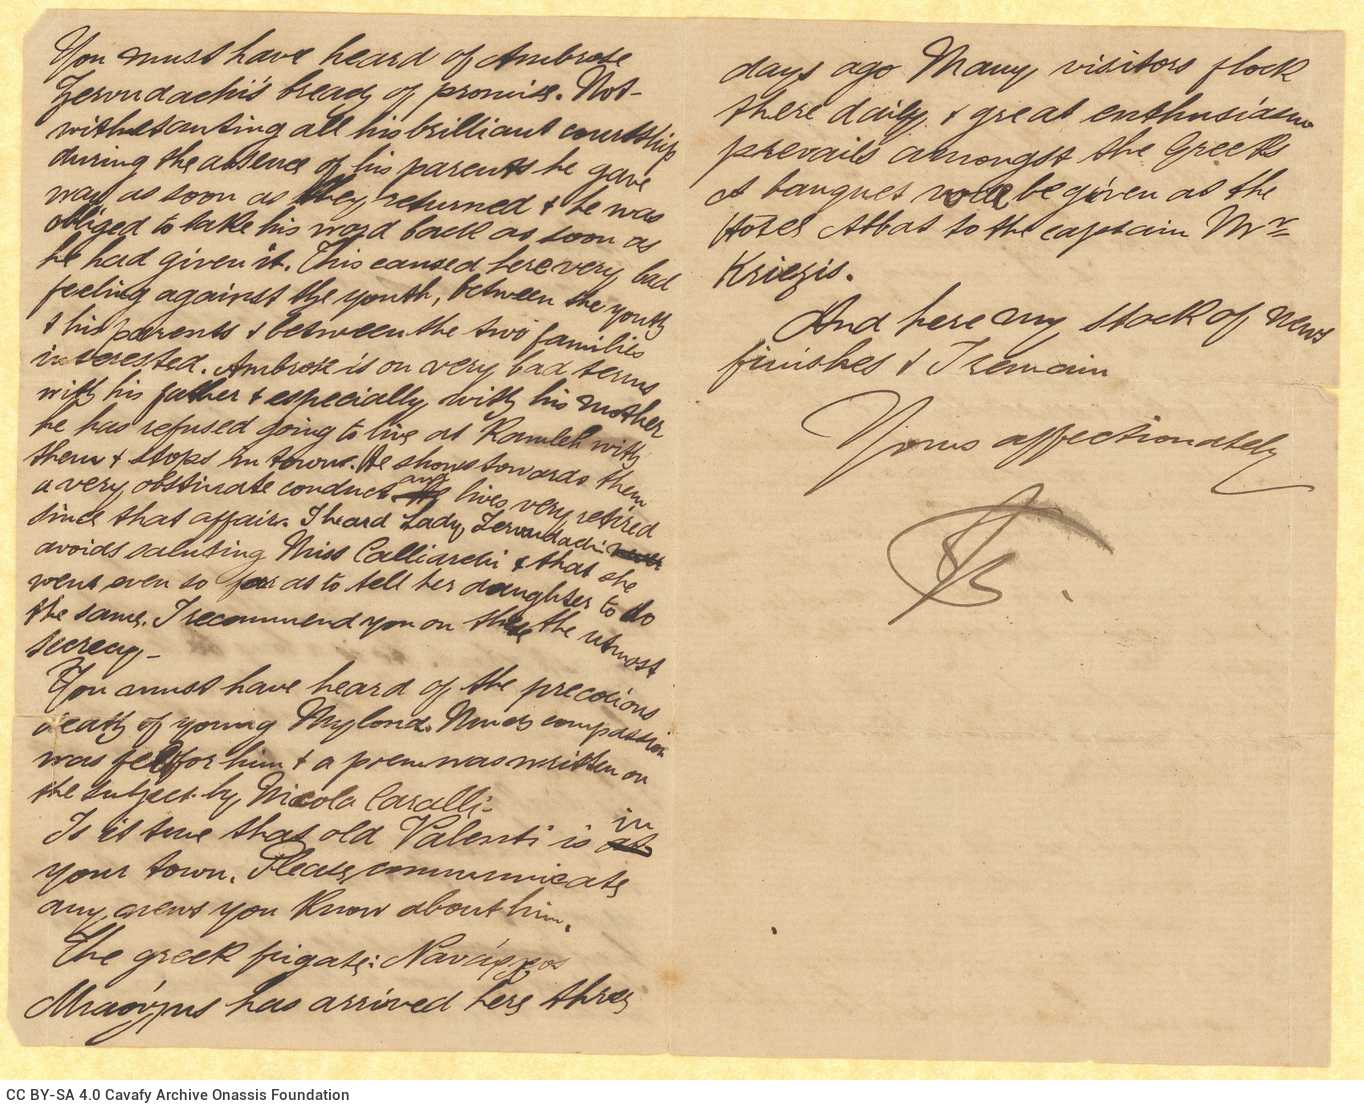 You must have heard of Ambrose
Zervudachi's breach of promise. Not-
withstanting all his brilliant courtship
during the absence of his parents he gave
way as soon as they returned & he was
obliged to take his word back as soon as
he had given it. This caused here very bad
feeling against the youth, between the youth
& his parents & between the two families
interested. Ambrose is on very bad terms
with his father & especially with his mother
he has refused going to live at Ramleh with
them & stops in town. He shows towards them
a very obstinate conduct and lives very retired
since that affair. I heard Lady Zervudachi never
avoids saluting Miss Calliarchi & that she
went even so far as to tell her daughter to do
the same. I recommend you on these the utmost
secrecy_
You must have heard of the precocious
death of young Mylona. Much compassion
was felt for him & a poem was written on
the subject by Nicola Cavalli.
Is it true that old Valenti is in
your town. Please communicate
any news you know about him.
The greek frigate: Ναύαρχος
Μιαούλης has arrived here three
days ago Many visitors flock
there daily & great enthusiasm
prevails amongst the Greeks
A banquet will be given at the
Hotel Abbat to the captain Mr
Kriezis.
And here my stock of news
finishes & I remain
Yours affectionately
CC BY-SA 4.0 Cavafy Archive Onassis Foundation